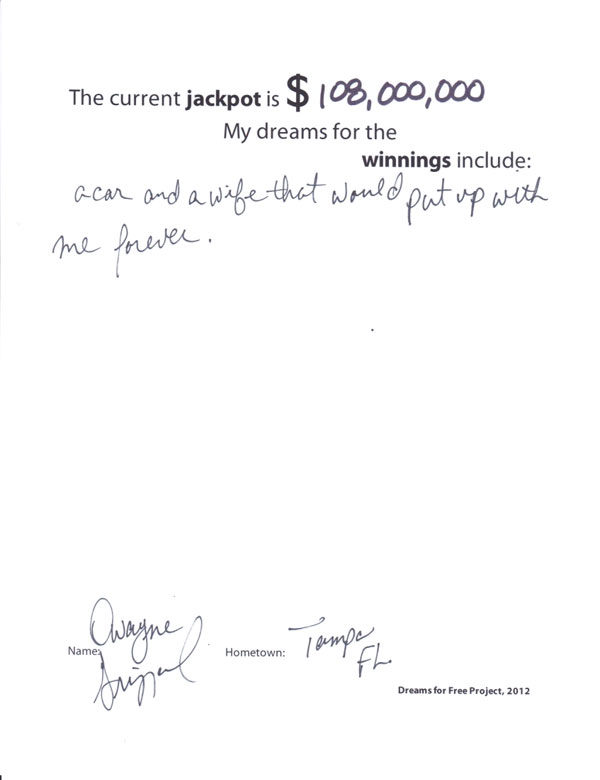 The current jackpot is $ 108,000,000
My dreams for the
winnings include:
a car and a wife that would put up with
me forever.
Name: Dwayne
Hometown: Tampa
FL.
Dreams for Free Project, 2012